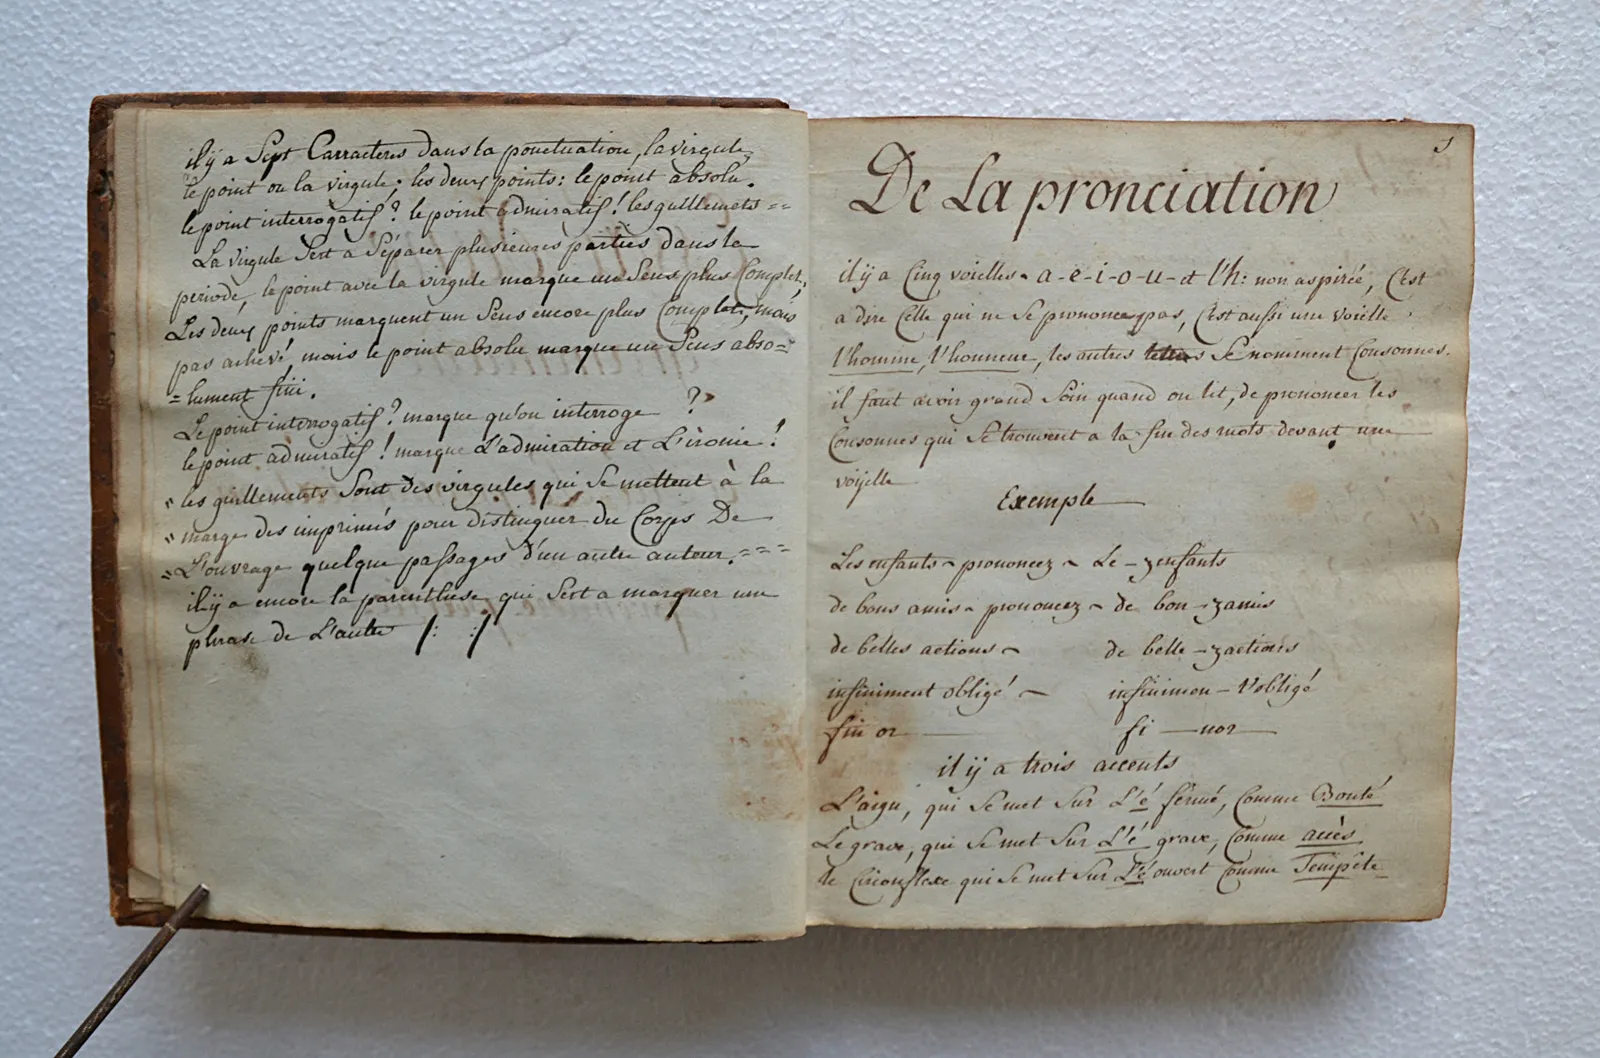 il y a Sept Carracteres dans la ponctuation, la virgule,
le point ou la virgule; les deux points: le point absolu.
le point interrogatif? le point admiratif! les guillemets ==
La virgule Sert a Séparer plusieures parties dans la
periode, le point avec la virgule marque un Sens plus Complet,
Les deux points marquent un Sens encore plus Complet, mais
pas achevé! mais le point absolu marque un Sens abso=
=lument fini.
Le point interrogatif? marque qu'on interroge ?
le point admiratif! marque L'admiration et L'ironie!
" les guillements Sont des virgules qui Se mettent à la
" marge des imprimés pour distinguer du Corps De
" L'ouvrage quelque passages d'un autre autour. ===
il y a encore la parenthese qui Sert a marquer une
phrase de L'autre /: :/
3
De La pronciation
il y a Cinq voielles ~ a-e-i-o-u- et l'h: non aspirée, C'est
a dire Celle qui ne Se prononce pas, C'est aussi une voielle
l'homme, l'honneur, les autres lettres Se nomment Consonnes.
il faut avoir grand Soin quand on lit, de prononcer les
Consonnes qui Se trouvent a la fin des mots devant une
voijelle
Exemple
Les enfants ~ prononcez ~ Le - zenfants
de bons amis ~ prononcez ~ de bon - zamis
de belles actions ~ de belle - zactions
infiniment obligé ~ infinimen - t'obligé
fin or — fi — nor —
il y a trois accents
L'aigu, qui Se met Sur L'é fermé, Comme Bonté
Le grave, qui Se met Sur L'è grave, Comme accès
le Circonflexe qui Se met Sur L'ê ouvert Comme Tempête